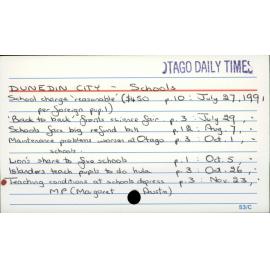 OTAGO DAILY TIMES
DUNEDIN CITY - Schools
School charge 'reasonable' ($450 p.10 : July 27, 1991
per foreign pupil)
'Back to back' grants science fair p.3 : July 29, "
Schools face big refund bill p.12 : Aug. 7, "
Maintenance problems worsen at Otago p.3 : Oct. 1, "
schools
Lion's share to five schools p.1 : Oct. 5, "
Islanders teach pupils to do hula p.3 : Oct. 26, "
Teaching conditions at schools depress p.3 : Nov. 23, "
MP (Margaret Austin)
53/C